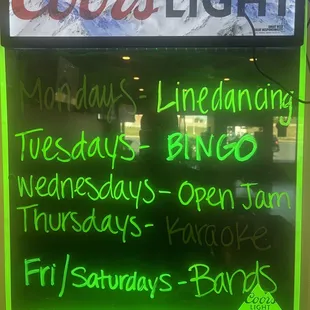 Coors LIGHT
Mondays - Linedancing
Tuesdays - BINGO
Wednesdays - Open Jam
Thursdays - Karaoke
Fri/Saturdays - Bands
Coors
LIGHT